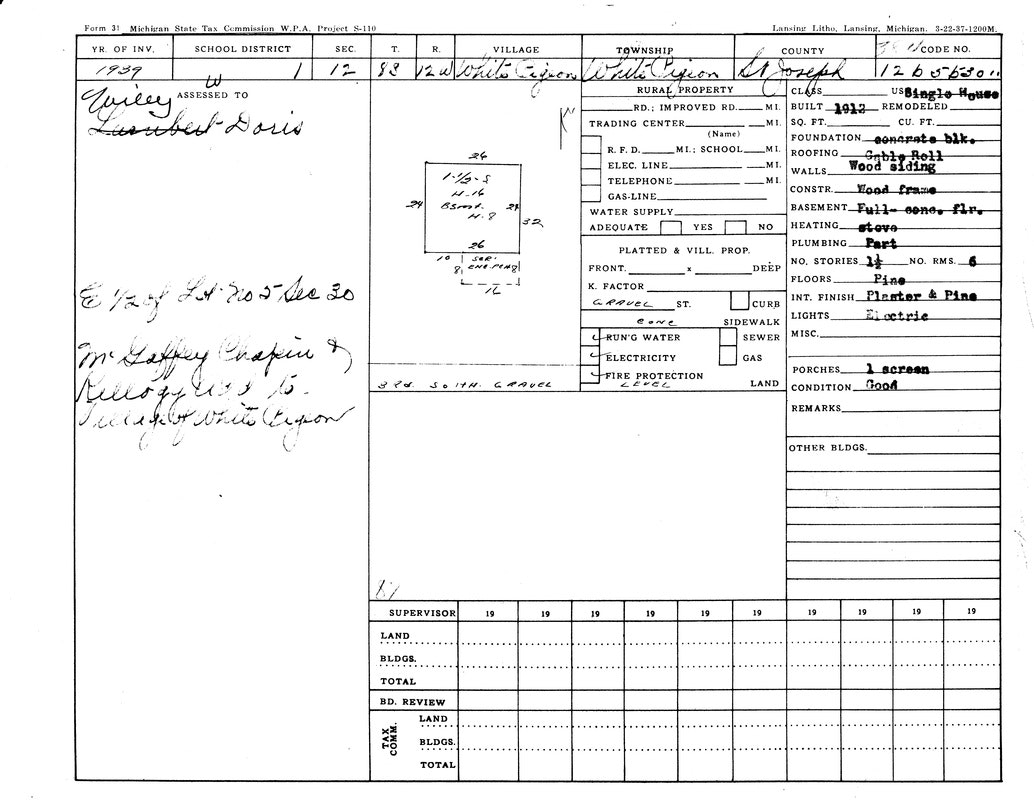 Form 31 Michigan State Tax Commission W.P.A. Project S-110
Lansing Litho, Lansing, Michigan. 3-22-37-1200M.
YR. OF INV. SCHOOL DISTRICT SEC. T. R. VILLAGE TOWNSHIP COUNTY CODE NO.
1939 W 1 12 8S 12W White Pigeon White Pigeon St Joseph
ASSESSED TO
Wiley
Lambert Doris
E 1/2 of Lot No 5 Sec 30
Mc Gaffey Chapin &
Kellogg add to
Village of White Pigeon
26
1-1/2-S
H-16
Bsmt.
H-7
24
32
26
10
SCR.
ENC. PCH
8
8
12
3rd. South. GRAVEL
RURAL PROPERTY
RD.; IMPROVED RD. MI.
TRADING CENTER MI.
(Name)
R. F. D. MI.; SCHOOL MI.
ELEC. LINE MI.
TELEPHONE MI.
GAS-LINE
WATER SUPPLY
ADEQUATE YES NO
PLATTED & VILL. PROP.
FRONT. x DEEP
K. FACTOR
GRAVEL ST. CURB
CONC SIDEWALK
RUN'G WATER SEWER
ELECTRICITY GAS
FIRE PROTECTION
LEVEL LAND
CLASS US Single House
BUILT 1912 REMODELED
SQ. FT. CU. FT.
FOUNDATION concrete blk.
ROOFING Gable Roll
WALLS Wood siding
CONSTR. Wood frame
BASEMENT Full- conc. flr.
HEATING stove
PLUMBING Part
NO. STORIES 1½ NO. RMS. 6
FLOORS Pine
INT. FINISH Plaster & Pine
LIGHTS Electric
MISC.
PORCHES 1 screen
CONDITION Good
REMARKS
OTHER BLDGS.
SUPERVISOR 19 19 19 19 19 19 19 19 19 19
LAND
BLDGS.
TOTAL
BD. REVIEW
TAX COMM.
LAND
BLDGS.
TOTAL